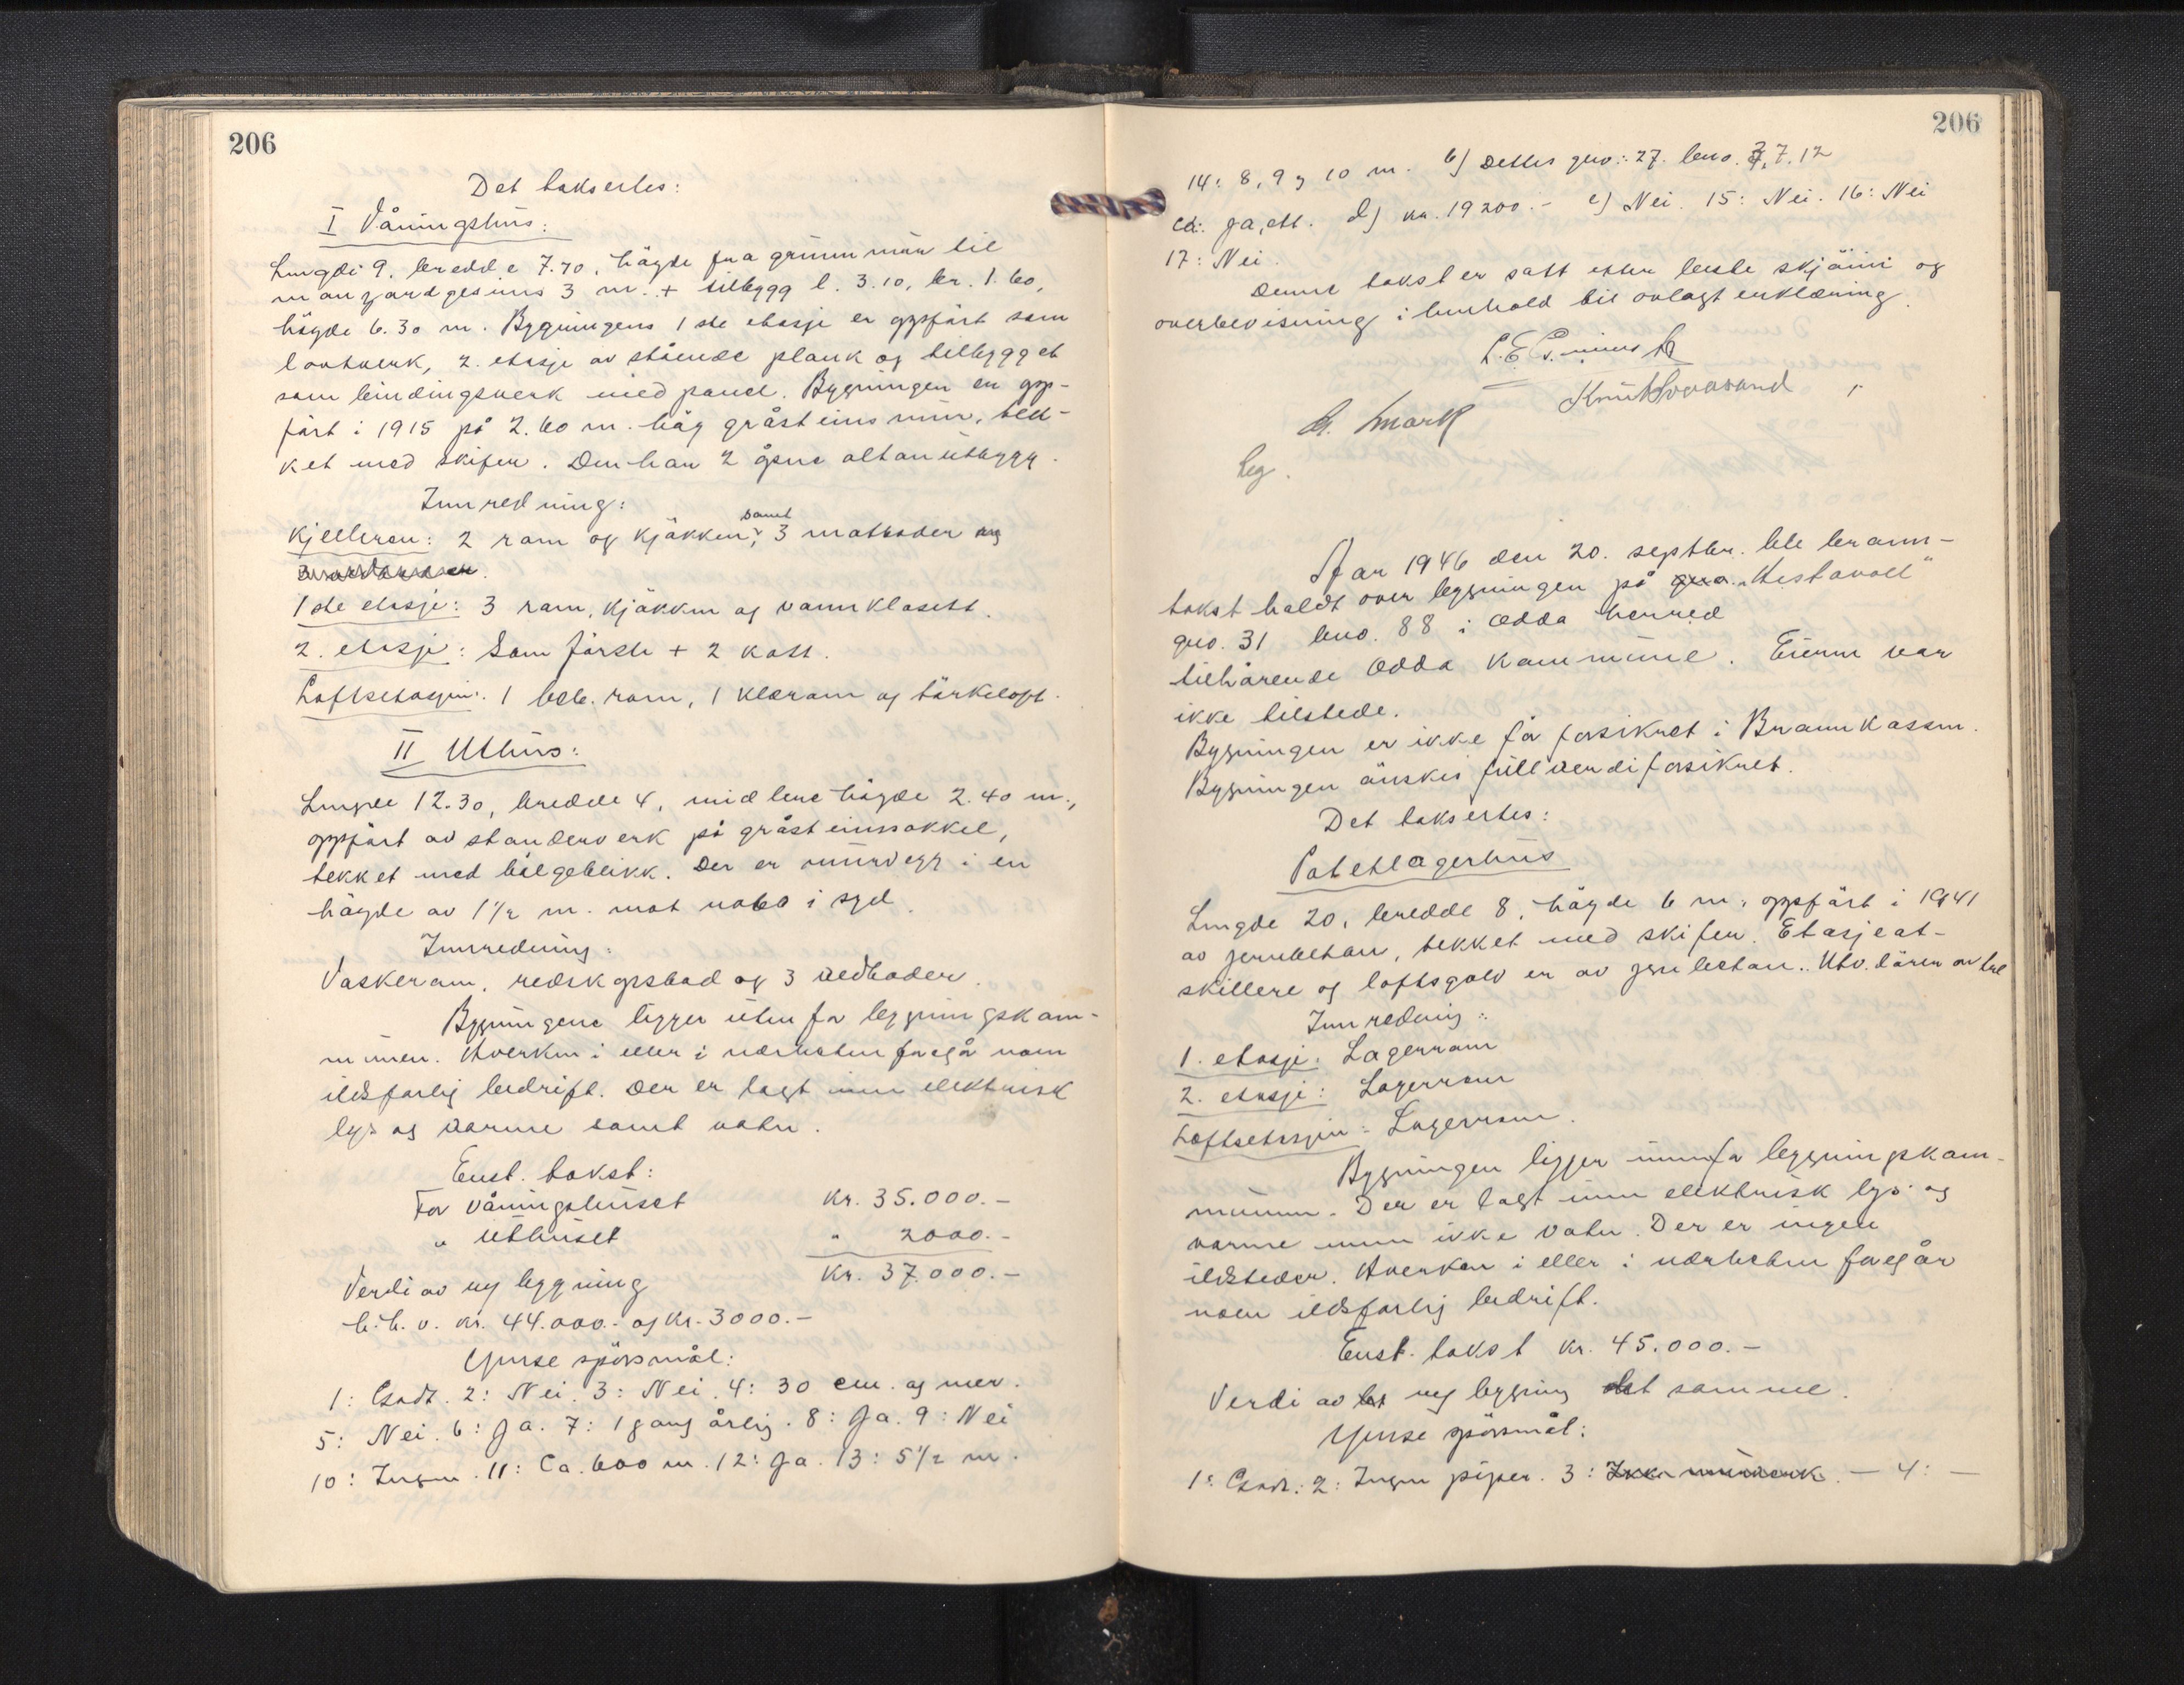 206
Det taksertes:
I Våningshus:
Lengde 9. bredde 7.70, högde fra grunnmur til
manzardgesims 3 m. + tilbygg l. 3.10, br. 1.60,
högde 6.30 m. Bygningens 1ste etasje er oppfört som
laftverk, 2. etasje av stående plank og tilbygget
som bindingsverk med panel. Bygningen er opp-
fört i 1915 på 2.60 m. höy gråsteinsmur, tek-
ket med skifer. Den har 2 åpne altanutbygg.
Innredning:
Kjelleren: 2 rom og kjökken, samt 3 matboder og
1ste etasje: 3 rom, kjökken og vannklosett.
2. etasje: Som förste + 2 kott.
Loftsetasjen: 1 beb. rom, 1 klærom og törkeloft.
II Uthus:
Lengde 12.30, bredde 4, midlere högde 2.40 m.,
oppfört av standerverk på gråsteinssokkel,
tekket med bölgeblikk. Der er murvegg i en
högde av 1½ m. mot nabo i syd.
Innredning:
Vaskerom, redskapsbod og 3 vedboder.
Bygningene ligger utenfor bygningskom-
munen. Hverken i eller i nærheten foregår noen
ildsfarlig bedrift. Der er lagt inn elektrisk
lys og varme samt vatn.
Enst. takst:
For våningshuset Kr. 35.000.-
" uthuset " 2000.-
Kr. 37.000.-
Verdi av ny bygning
h.h.v. kr. 44.000.- og kr. 3000.-
Ymse spörsmål:
1: Godt. 2: Nei. 3: Nei. 4: 30 cm. og mer.
5: Nei. 6: Ja. 7: 1 gang årlig. 8: Ja. 9: Nei
10: Ingen. 11: Ca. 600 m. 12: Ja. 13: 5½ m.
206
14: 8, 9 og 10 m. b) Dettes gno: 27. bno. 7, 7. 12
Ja, ett. d) kr. 19200.- e) Nei. 15: Nei. 16: Nei
17: Nei.
Denne takst er satt etter beste skjönn og
overbevisning i henhold til avlagt erklæring.
Knut
Mark
leg.
År 1946 den 20. septbr. ble brann-
takst holdt over bygningen på gno. "Hestavoll"
gno. 31 bno. 88 i Odda herred
tilhörende Odda kommune. Eieren var
ikke tilstede.
Bygningen er ikke för forsikret i Brannkassen.
Bygningen önskes fullverdiforsikret.
Det taksertes:
Potetlagerhus
Lengde 20, bredde 8, högde 6 m., oppfört i 1941
av jernbeton, tekket med skifer. Etasjeat-
skillere og loftsgolv er av jernbeton. Utv. dörer av tre
Innredning:
1. etasje: Lagerrom
2. etasje: Lagerrom
Loftsetasjen: Lagerrom.
Bygningen ligger innenfor bygningskom-
munen. Der er lagt inn elektrisk lys og
varme men ikke vatn. Der er ingen
ildsteder. Hverken i eller i nærheten foregår
noen ildsfarlig bedrift.
Enst. takst kr. 45.000.-
Verdi av ny bygning det samme.
Ymse spörsmål:
1: Godt. 2: Ingen piper. 3: Ikke murverk. — 4: —